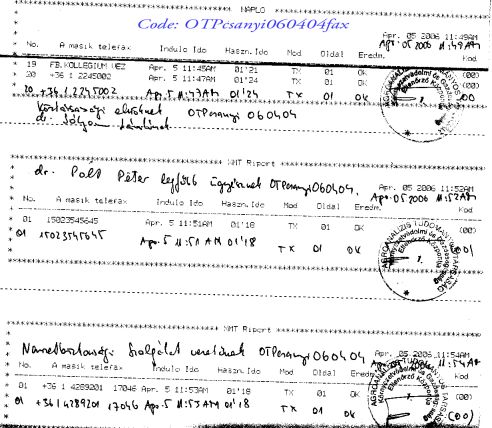 NAPLO
Code: OTPcsanyi060404fax
Apr. 05 2006 11:49AM
Apr. 05 2006 11:49AM
No. A masik telefax Indulo Ido Haszn.Ido Mod Oldal Eredm. Kod
19 FB.KOLLEGIUM VEZ Apr. 5 11:45AM 01'21 TX 01 OK (00)
20 +36 1 2245002 Apr. 5 11:47AM 01'24 TX 01 OK (00)
20 +36 1 2245002 Apr. 5 11:47AM 01'24 TX 01 OK (00)
Köztársasági elnöknek OTPcsanyi 060404
dr. Sólyom
NMT Riport
Apr. 05 2006 11:52AM
dr. Polt Péter legfőbb ügyésznek OTPcsanyi060404. Apr. 05 2006 11:52AM
No. A masik telefax Indulo Ido Haszn.Ido Mod Oldal Eredm. Kod
01 15023545645 Apr. 5 11:51AM 01'18 TX 01 OK (00)
01 15023545645 Apr. 5 11:51 AM 01'18 TX 01 OK
NMT Riport
Apr. 05 2006 11:54AM
Nemzetbiztonsági Szolgálat OTPcsanyi060404 Apr. 05 2006 11:54AM
No. A masik telefax Indulo Ido Haszn.Ido Mod Oldal Eredm. Kod
01 +36 1 4289201 17046 Apr. 5 11:53AM 01'18 TX 01 OK
01 +36 1 4289201 17046 Apr. 5 11:53 AM 01'18 TX 01 OK (00)